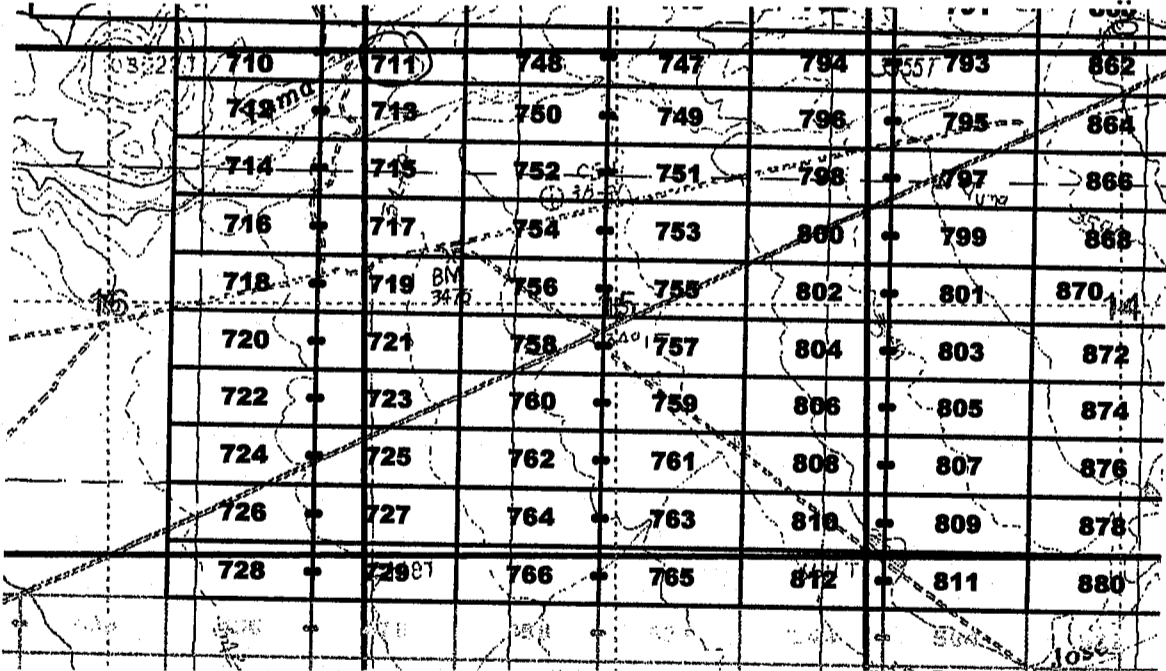 710 711 748 747 794 793 862
712 713 750 749 796 795 864
714 715 752 751 798 797 866
716 717 754 753 800 799 868
718 719 BM 756 755 802 801 870
3475
16 15 14
720 721 758 757 804 803 872
722 723 760 759 806 805 874
724 725 762 761 808 807 876
726 727 764 763 810 809 878
728 729 766 765 812 811 880
Jose